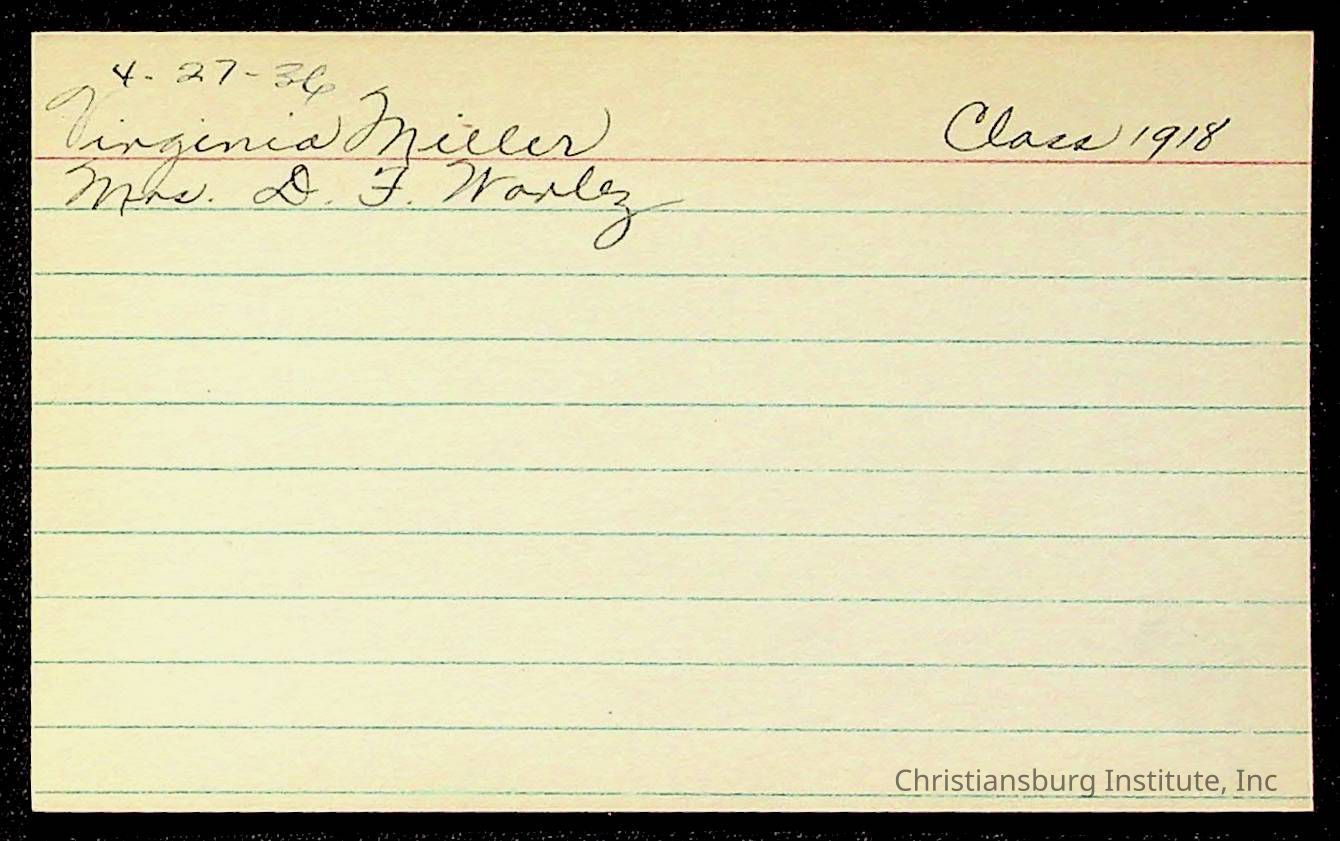 4-27-36
Virginia Miller Class 1918
Mrs. D. F. Worley
Christiansburg Institute, Inc